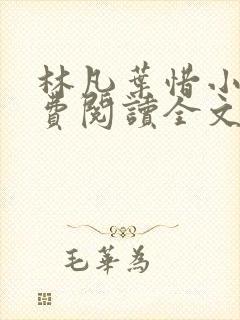 林凡葉惜小
費閱讀全文
毛華為